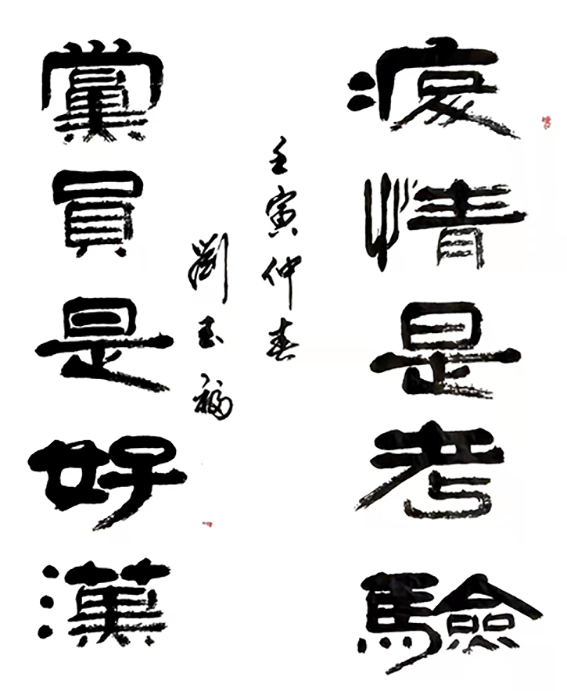 疫情是考驗
壬寅仲春
劉玉福
黨員是好漢